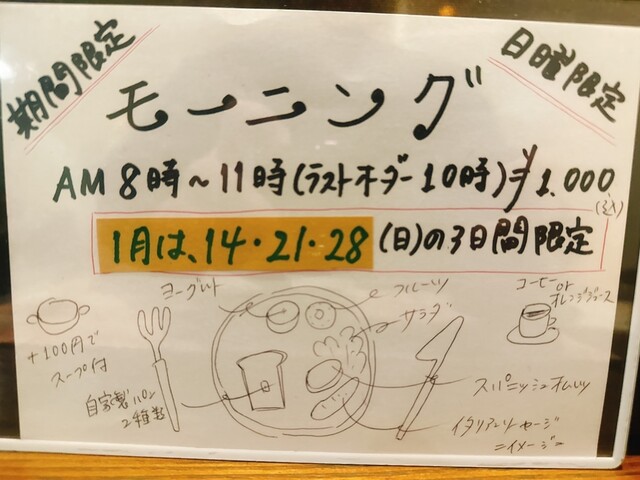 期間限定
日曜限定
モーニング
AM 8時～11時(ラストオーダー10時)¥1.000
(込)
1月は、14・21・28(日)の3日間限定
ヨーグルト
フルーツ
サラダ
コーヒー
or
オレンジジュース
+100円で
スープ付
自家製パン
2種類
スパニッシュオムレツ
イタリアンソーセージ
=イメージ=